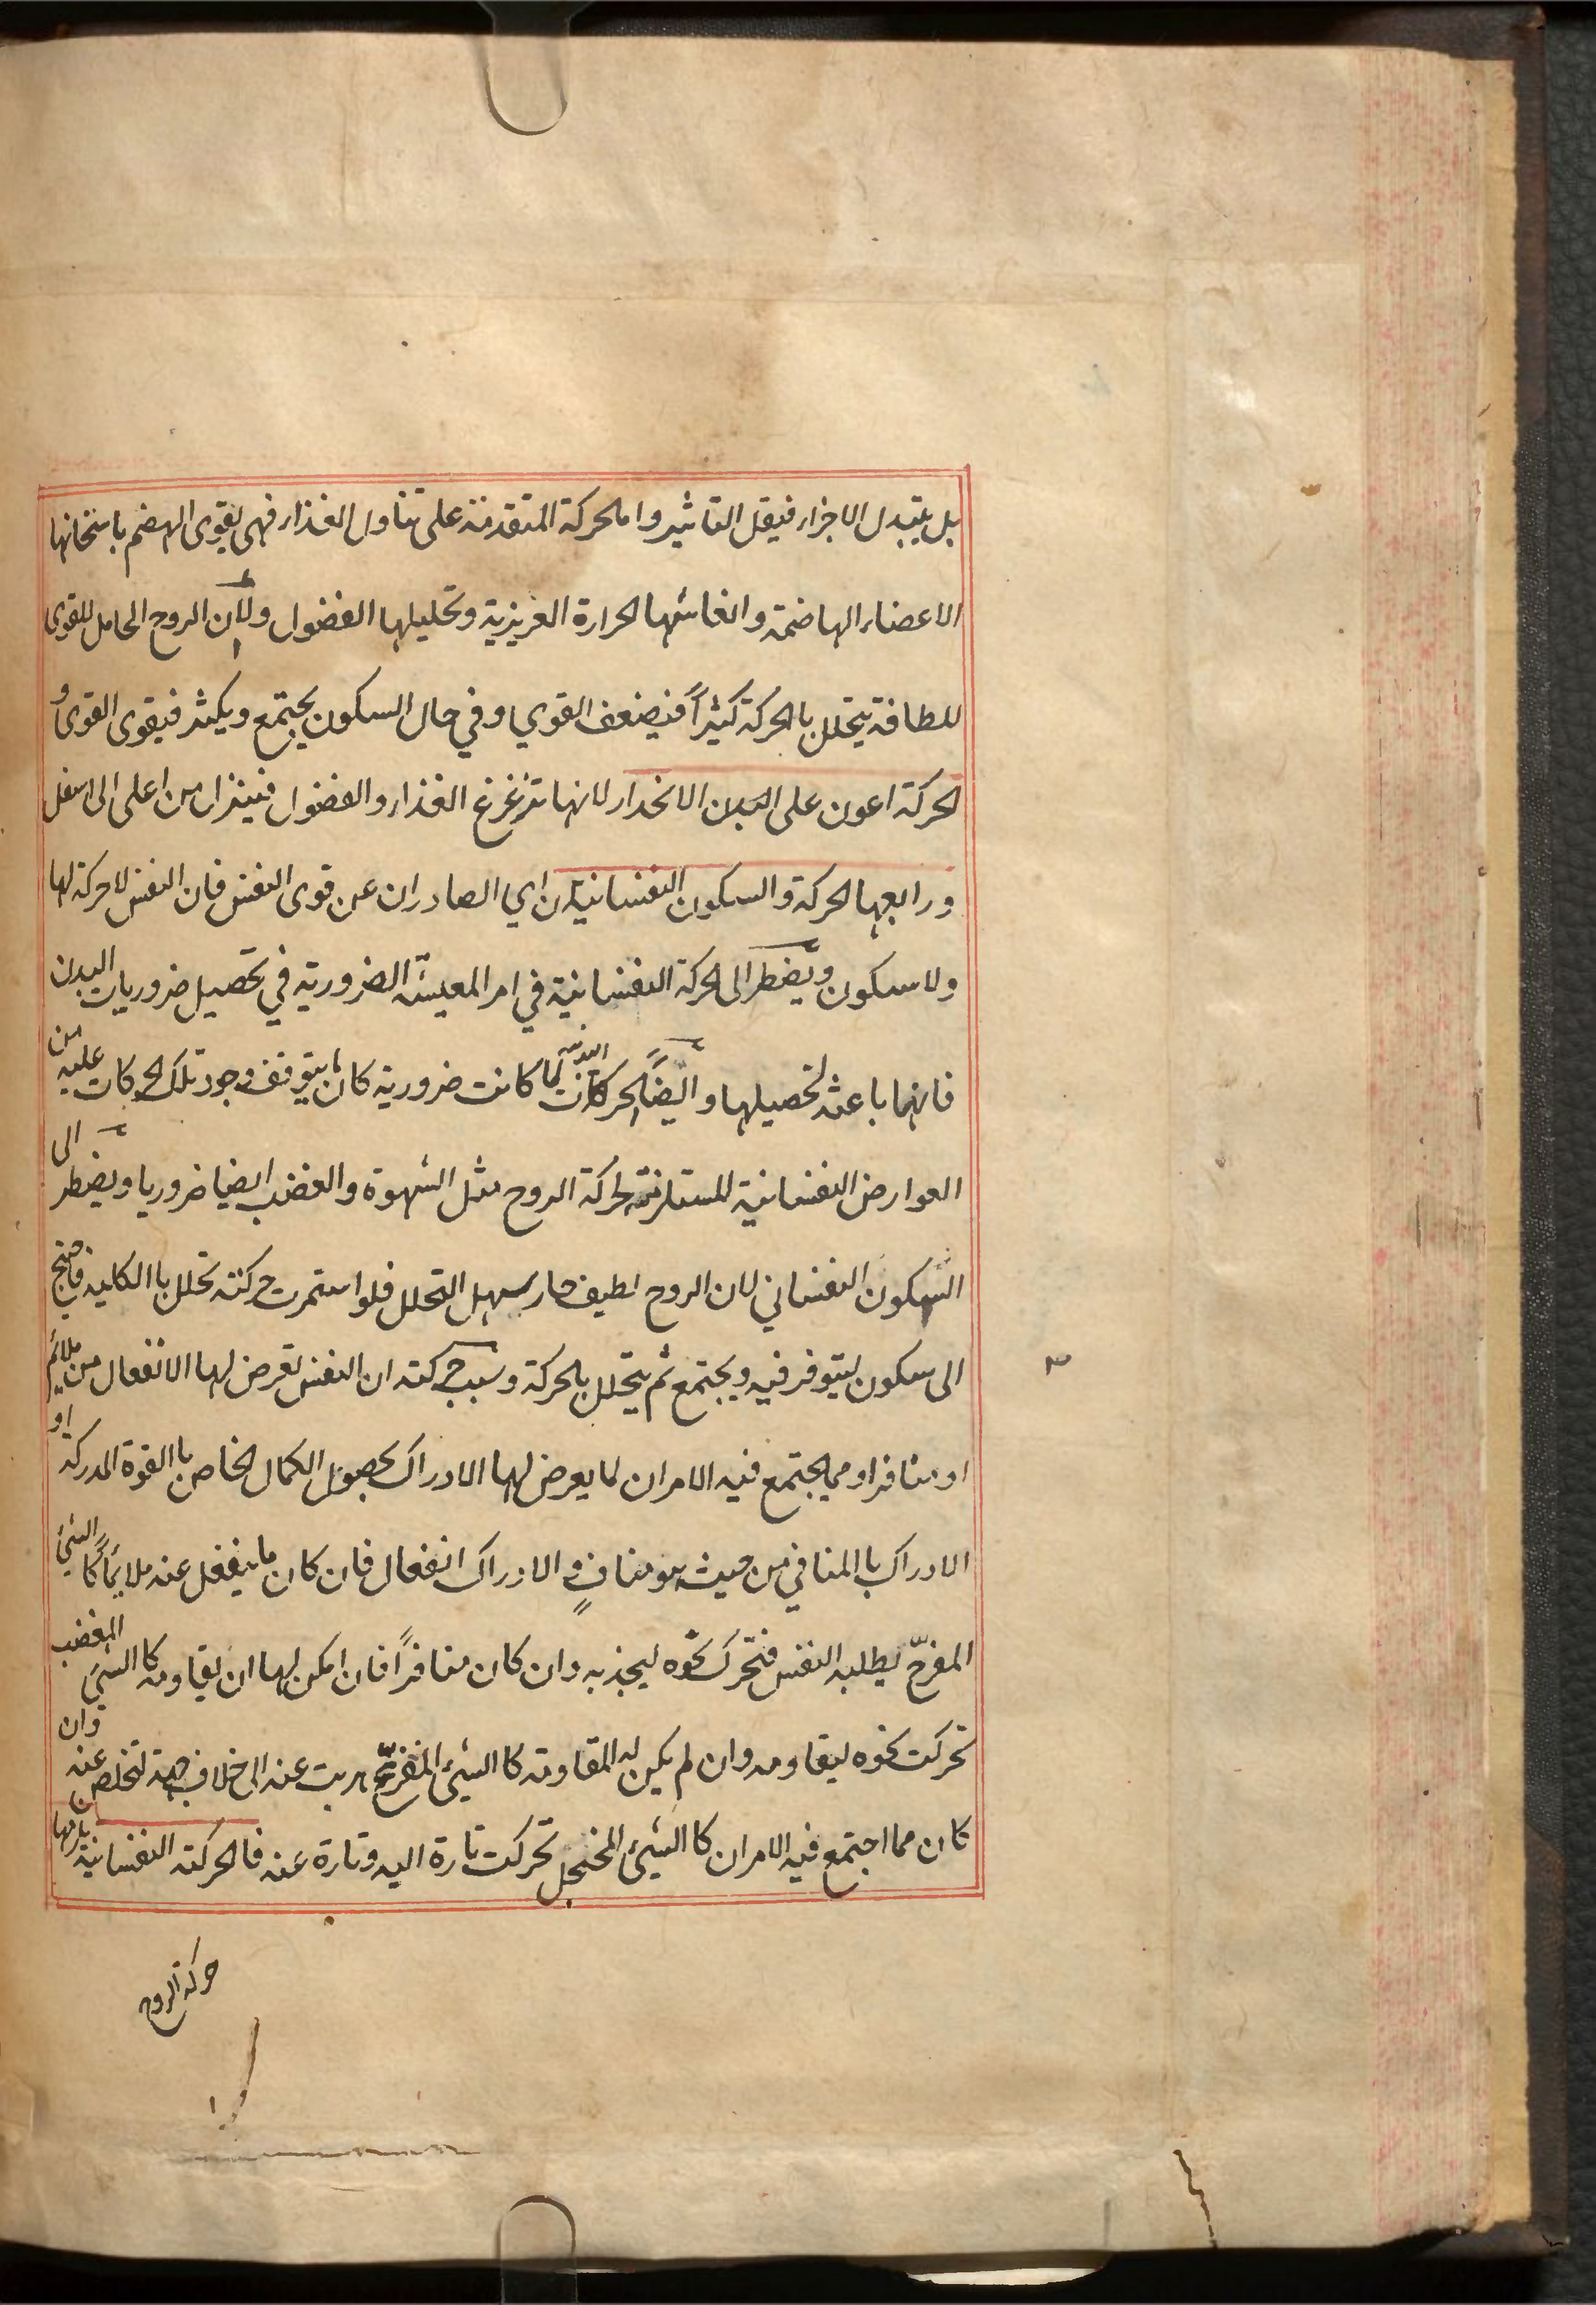 بل يتبدل الاجزاء فيقل التاثير واما الحركة المتقدمة على تناول الغذاء فهى يقوى الهضم باسخانها
الاعضاء الهاضمة وانعاشها الحرارة الغريزية وتحليلها الفضول ولان الروح الحامل للقوى
للطافة يتحلل بالحركة كثيراً فيضعف القوي وفي حال السكون يجتمع ويكثر فيقوى القوى و
الحركة اعون على الانحدار لانها تزغزغ الغذاء والفضول فينزل من اعلى الى اسفل
ورابعها الحركة والسكون النفسانيان اي الصادران عن قوى النفس فان النفس لا حركة لها
ولا سكون ويضطر الى الحركة النفسانية في امر المعيشة الضرورية في تحصيل ضروريات البدن
فانها باعثة لتحصيلها وايضاً الحركات البدنية لما كانت ضرورية كان ما يتوقف وجود تلك الحركات عليه من
العوارض النفسانية المستلزمة لحركة الروح مثل الشهوة والغضب ايضا ضروريا ويضطر الى
السكون النفساني لان الروح لطيف حار سهل التحلل فلو استمرت حركته تحلل باالكلية فاحتيج
الى سكون ليتوفر فيه ويجتمع ثم يتحلل بالحركة وسبب حركته ان النفس تعرض لها الانفعال من ملائم
او منافر او مما يجتمع فيه الامران لما يعرض لها الادراك بحصول الكمال الخاص باالقوة المدركة او
الادراك باالمنافي من حيث هو منافٍ والادراك انفعال فان كان ما ينفعل عنه ملايماً كاالشيئ
المفرّح يطلبه النفس فتحرك نحوه ليجذبه وان كان منافراً فان امكن لها ان يقاومه كاالشيئ المغضب
تحركت نحوه ليقاومه وان لم يكن له المقاومة كاالشيئ المفزع هربت عنه الى خلاف جهة لتخلص عنه وان
كان مما اجتمع فيه الامران كاالشيئ المخجل تحركت تارة اليه وتارة عنه فاالحركة النفسانية يلزمها
حركة الروح